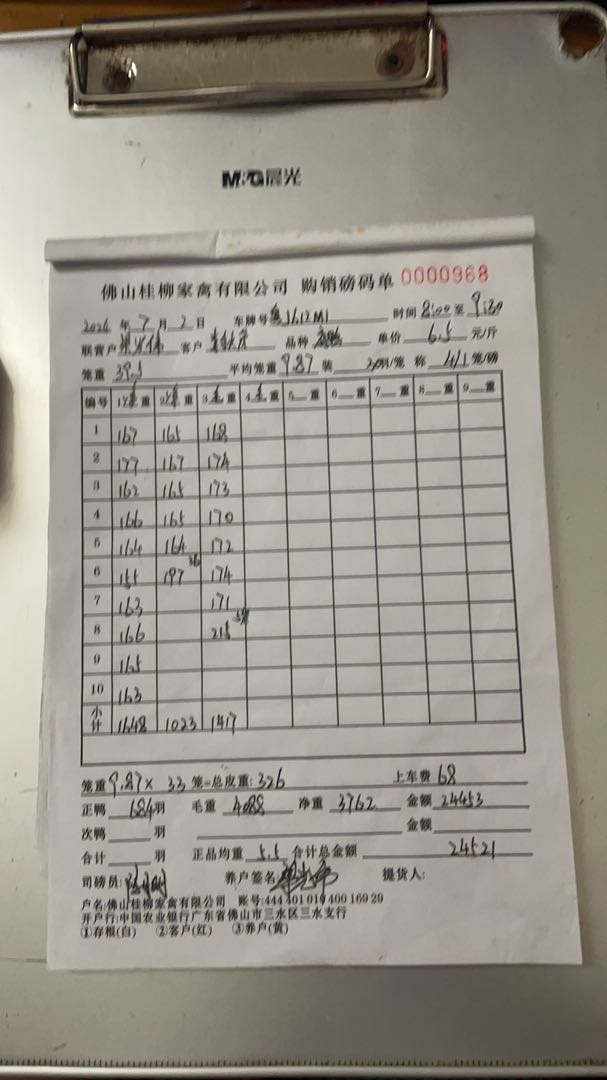 M&G晨光
佛山桂柳家禽有限公司 购销磅码单 0000968
2026 年 7 月 2 日 车牌号 J612M1 时间 8:00 至 9:30
联营户 客户 品种 单价 6.5 元/斤
笼重 39.5 平均笼重 9.87 装 只/笼 称 4/1 笼/磅
编号 1 重 2 重 3 重 4 重 5 重 6 重 7 重 8 重 9 重
1 167 165 168
2 177 167 174
3 162 165 173
4 166 165 170
5 164 164 172
6 155 197 174
7 163 171
8 166 215
9 165
10 163
小计 1648 1023 1417
笼重 9.87 × 33 笼=总皮重: 326 上车费 68
正鸭 684 羽 毛重 4088 净重 3762 金额 24453
次鸭 羽 金额
合计 羽 正品均重 5.5 合计总金额 24521
司磅员: 养户签名: 提货人:
户名:佛山桂柳家禽有限公司 账号:444 401 010 400 169 29
开户行:中国农业银行广东省佛山市三水区三水支行
①存根(白) ②客户(红) ③养户(黄)